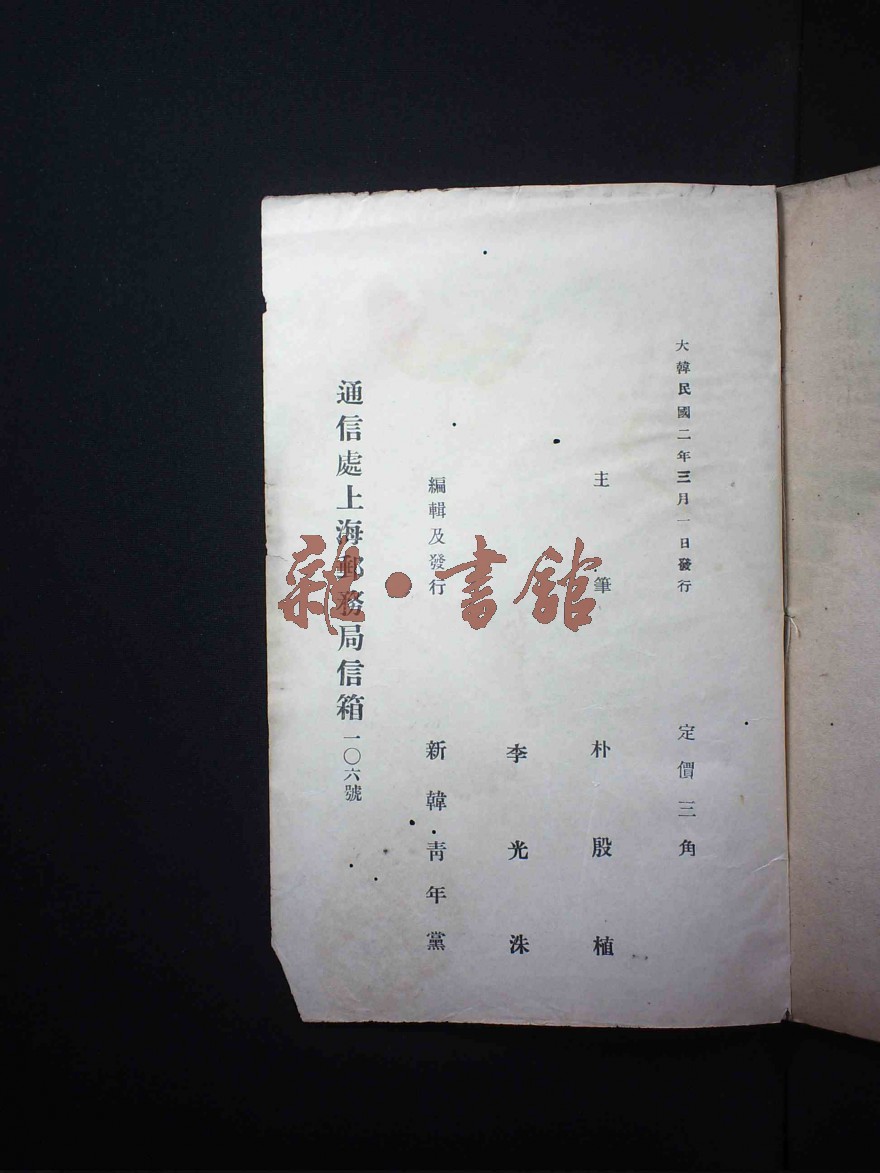 大韓民國二年三月一日發行 定價三角
主筆 朴殷植
李光洙
編輯及發行 新韓靑年黨
通信處上海郵務局信箱一〇六號
雜·書館